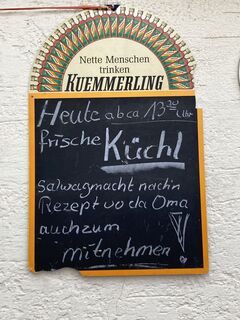 Nette Menschen
trinken
KUEMMERLING
Heute ab ca 13³⁰ Uhr
frische Küchl
salwagmacht nach'n
Rezept vo da Oma
auch zum
mitnehmen!